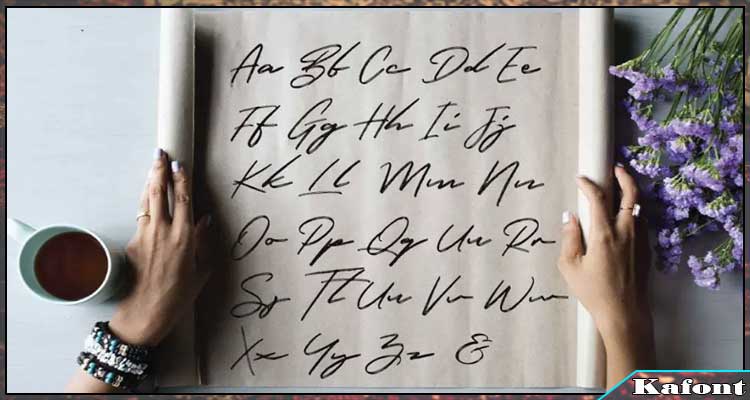 Aa Bb Cc Dd Ee
Ff Gg Hh Ii Jj
Kk Ll Mm Nn
Oo Pp Qq Uu Rr
Ss Tt Uu Vv Ww
Xx Yy Zz &
Kafont